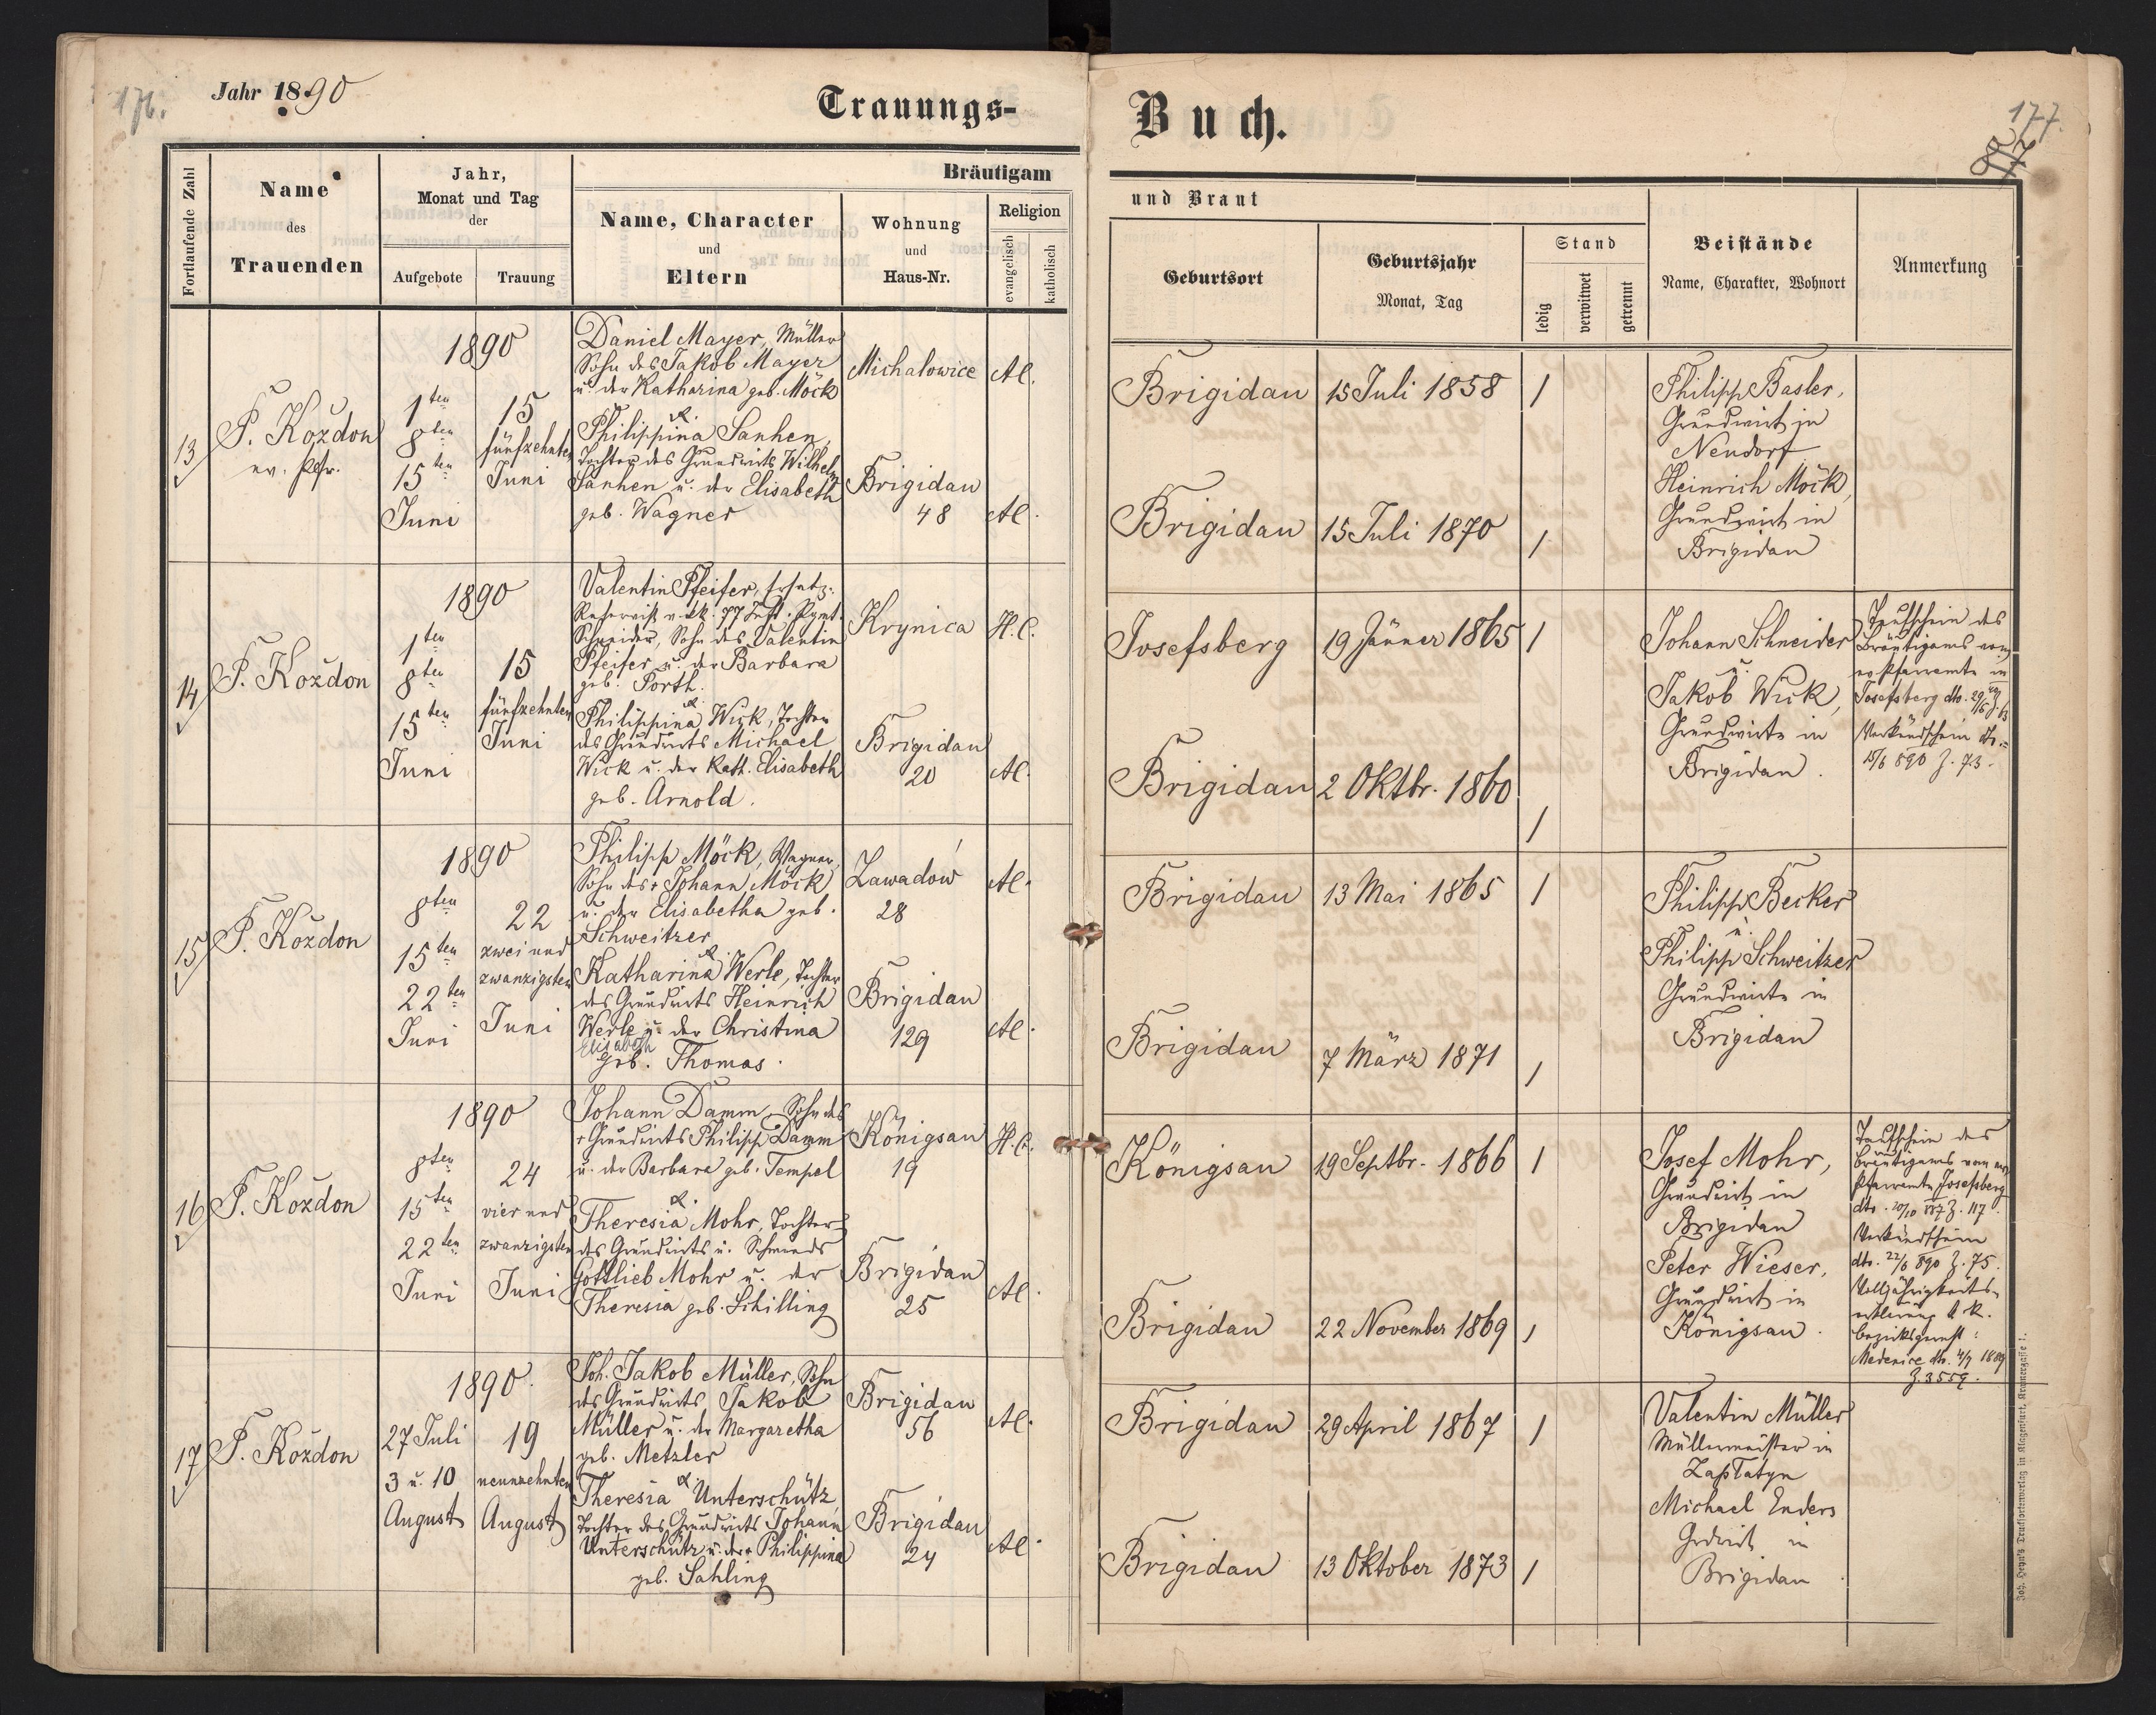 176.
Jahr 1890
Trauungs-
Fortlaufende Zahl
Name
des
Trauenden
Jahr,
Monat und Tag
der
Aufgebote
Trauung
Bräutigam
Name, Character
und
Eltern
Wohnung
und
Haus-Nr.
Religion
evangelisch
katholisch
13
P. Koždon
ev. Pfr.
1890
1ten
8ten
15ten
Juni
15
fünfzehnten
Juni
Daniel Mayer, Müller
Sohn des Jakob Mayer
u. der Katharina geb. Möck
&.
Philippina Sanhen,
Tochter des Grundwirts Wilhelm
Sanhen u. der Elisabeth
geb. Wagner
Michalowice
Brigidau
48
A.
A.
14
P. Koždon
1890
1ten
8ten
15ten
Juni
15
fünfzehnten
Juni
Valentin Pfeifer, Ersatz-
Reservist v. k. k. 77 Inft. Rgmt.
Schneider, Sohn des Valentin
Pfeifer u. der Barbara
geb. Porth.
&.
Philippina Wick, Tochter
des Grundwirts Michael
Wick u. der Kath. Elisabeth
geb. Arnold.
Krynica
Brigidau
20
H.C.
A.
15
P. Koždon
1890
8ten
15ten
22ten
Juni
22
zwei und
zwanzigsten
Juni
Philipp Möck, Wagner,
Sohn des + Johann Möck
u. der Elisabetha geb.
Schweitzer
&.
Katharina Werle, Tochter
des Grundwirts Heinrich
Werle u. der Christina
Elisabeth
geb. Thomas.
Zawadów
28
Brigidau
129
A.
A.
16
P. Koždon
1890
8ten
15ten
22ten
Juni
24
vier und
zwanzigsten
Juni
Johann Damm, Sohn des
+ Grundwirts Philipp Damm
u. der Barbara geb. Tempel
&.
Theresia Mohr, Tochter
des Grundwirts u. Schmieds
Gottlieb Mohr u. der
Theresia geb. Schilling
Königsau
19
Brigidau
25
H.C.
A.
17
P. Koždon
1890.
27 Juli
3 u. 10
August
19
neunzehnten
August
Joh. Jakob Müller, Sohn
des Grundwirts Jakob
Müller u. der Margaretha
geb. Metzler
&.
Theresia Unterschütz,
Tochter des Grundwirts Johann
Unterschütz u. der + Philippina
geb. Sahling
Brigidau
56
Brigidau
24
A.
A.
Buch.
177.
und Braut
Geburtsort
Geburtsjahr
Monat, Tag
Stand
ledig
verwitwet
getrennt
Beistände
Name, Charakter, Wohnort
Anmerkung
Brigidau
15 Juli 1858
/
Brigidau
15 Juli 1870
/
Philipp Basler,
Grundwirt in
Neudorf
Heinrich Möck,
Grundwirt in
Brigidau
Josefsberg
19 Jänner 1865
/
Brigidau
2 Oktbr. 1860
/
Johann Schneider
u.
Jakob Wick,
Grundwirte in
Brigidau.
Taufschein des
Bräutigams vom
ev. Pfarramte in
Josefsberg dto.
Verkündschein dto.
15/6 890 Z. 73.
Brigidau
13 Mai 1865
/
Brigidau
7 März 1871
/
Philipp Becker
u.
Philipp Schweitzer
Grundwirte in
Brigidau
Königsau
19 Septbr. 1866
/
Brigidau
22 November 1869
/
Josef Mohr,
Grundwirt in
Brigidau
Peter Wieser,
Grundwirt in
Königsau.
Taufschein des
Bräutigams vom ev.
Pfarramte Josefsberg
dto. 10/10 887 Z. 117.
Verkündschein
dto. 22/6 890 Z. 75.
Volljährigkeits-
erklärung k. k.
Bezirksgericht
Medenice dto. 4/7 1889
Z. 3559.
Brigidau
29 April 1867
/
Brigidau
13 Oktober 1873
/
Valentin Müller
Müllermeister in
Zaplatyn
Michael Enders
Grdwirt in
Brigidau
Joh. Heyn's Drucksortenverlag in Klagenfurt, Kramergasse 1.